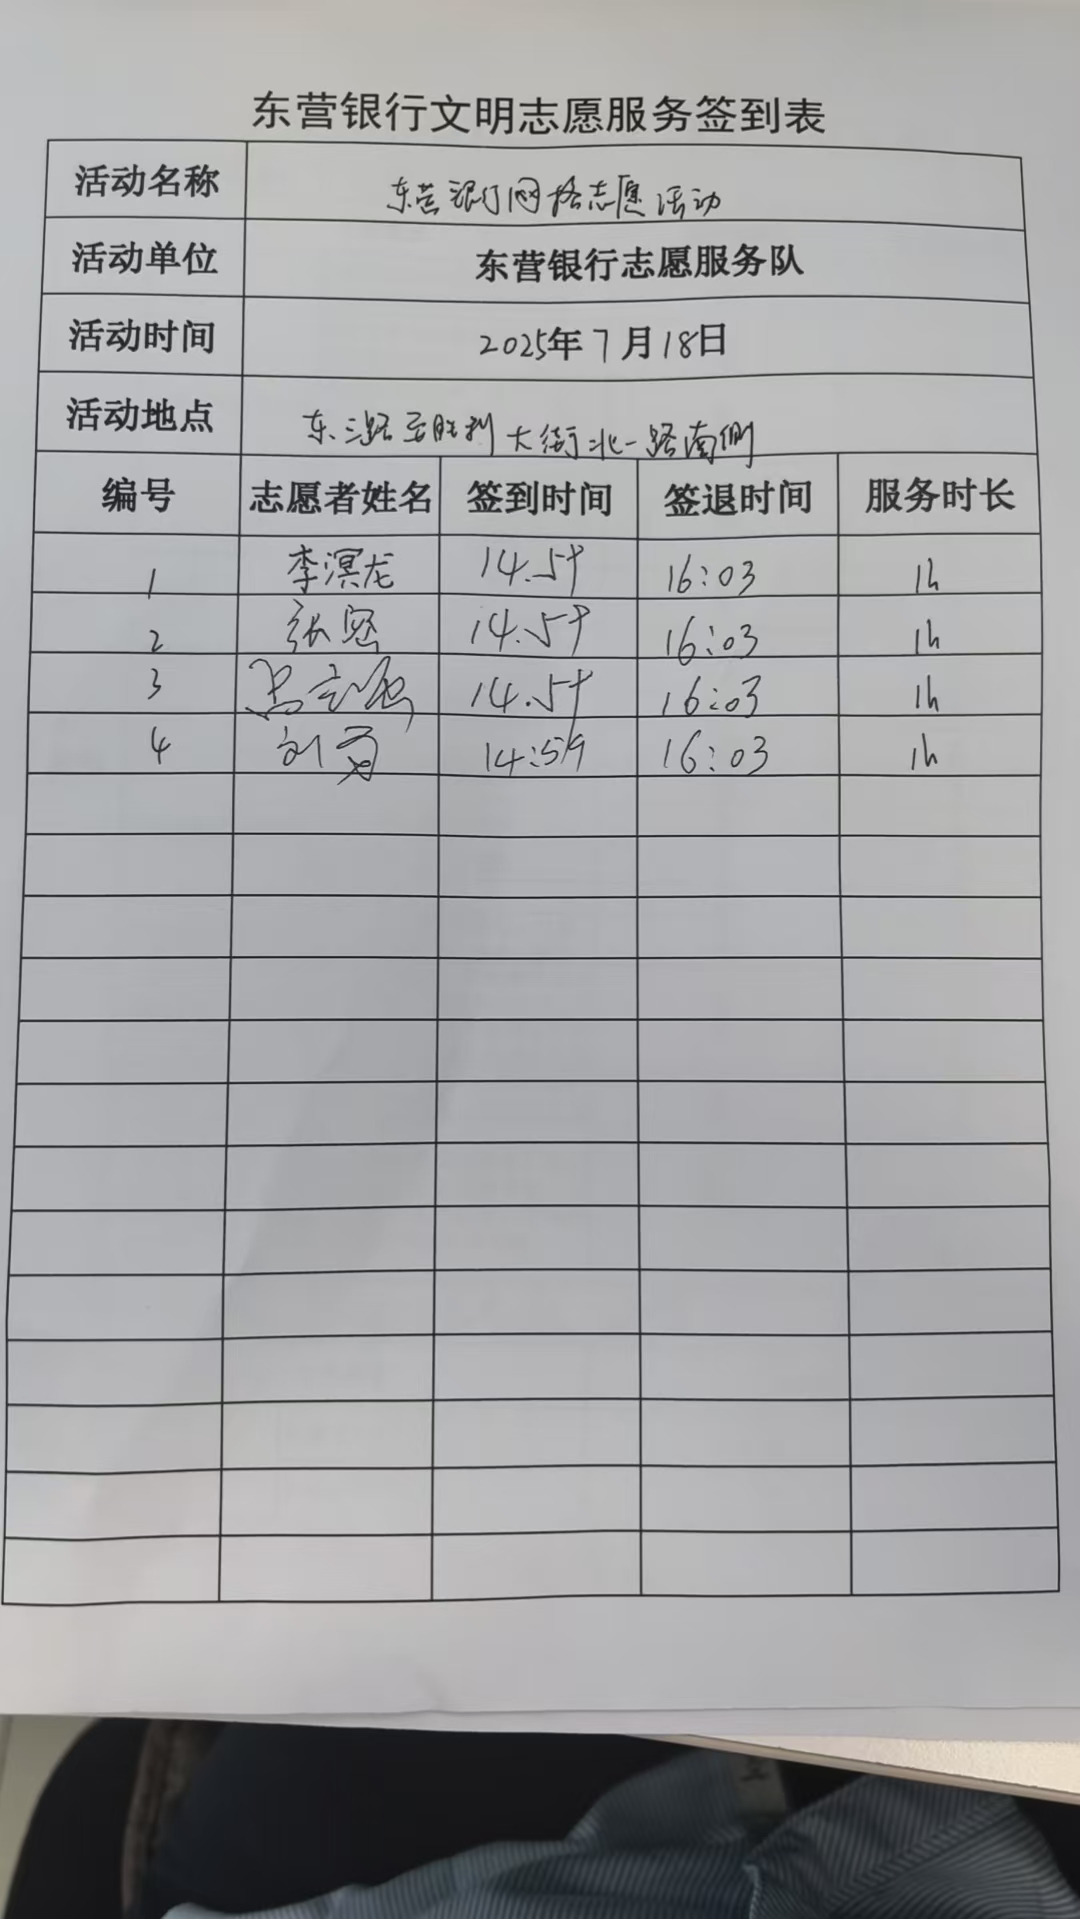 东营银行文明志愿服务签到表
活动名称 东营银行网格志愿活动
活动单位 东营银行志愿服务队
活动时间 2025年7月18日
活动地点 东三路至胜利大街北一路南侧
编号 志愿者姓名 签到时间 签退时间 服务时长
1 李溟龙 14.59 16:03 1h
2 张 14.59 16:03 1h
3 14.59 16:03 1h
4 刘 14:59 16:03 1h